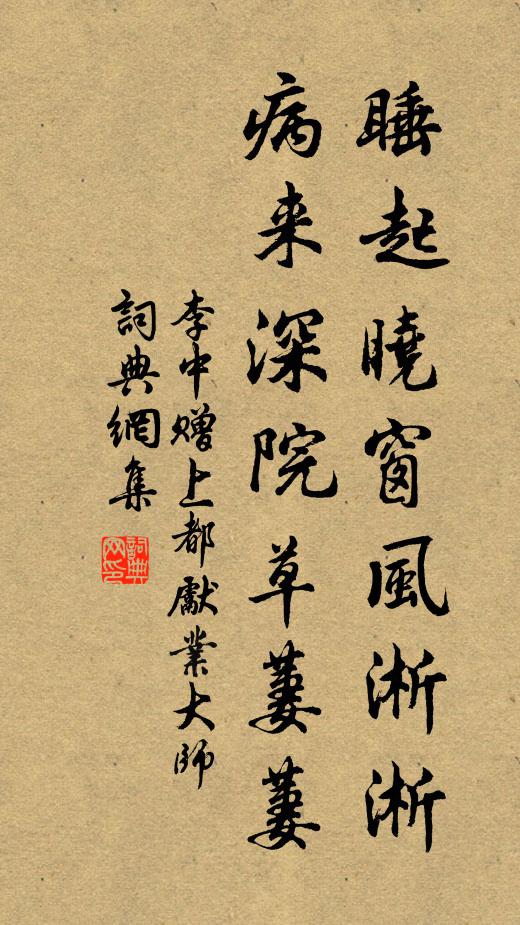 睡起曉窗風淅淅
病来深院草萋萋
李中贈上都獻業大師
詞典網集
詞典
网印